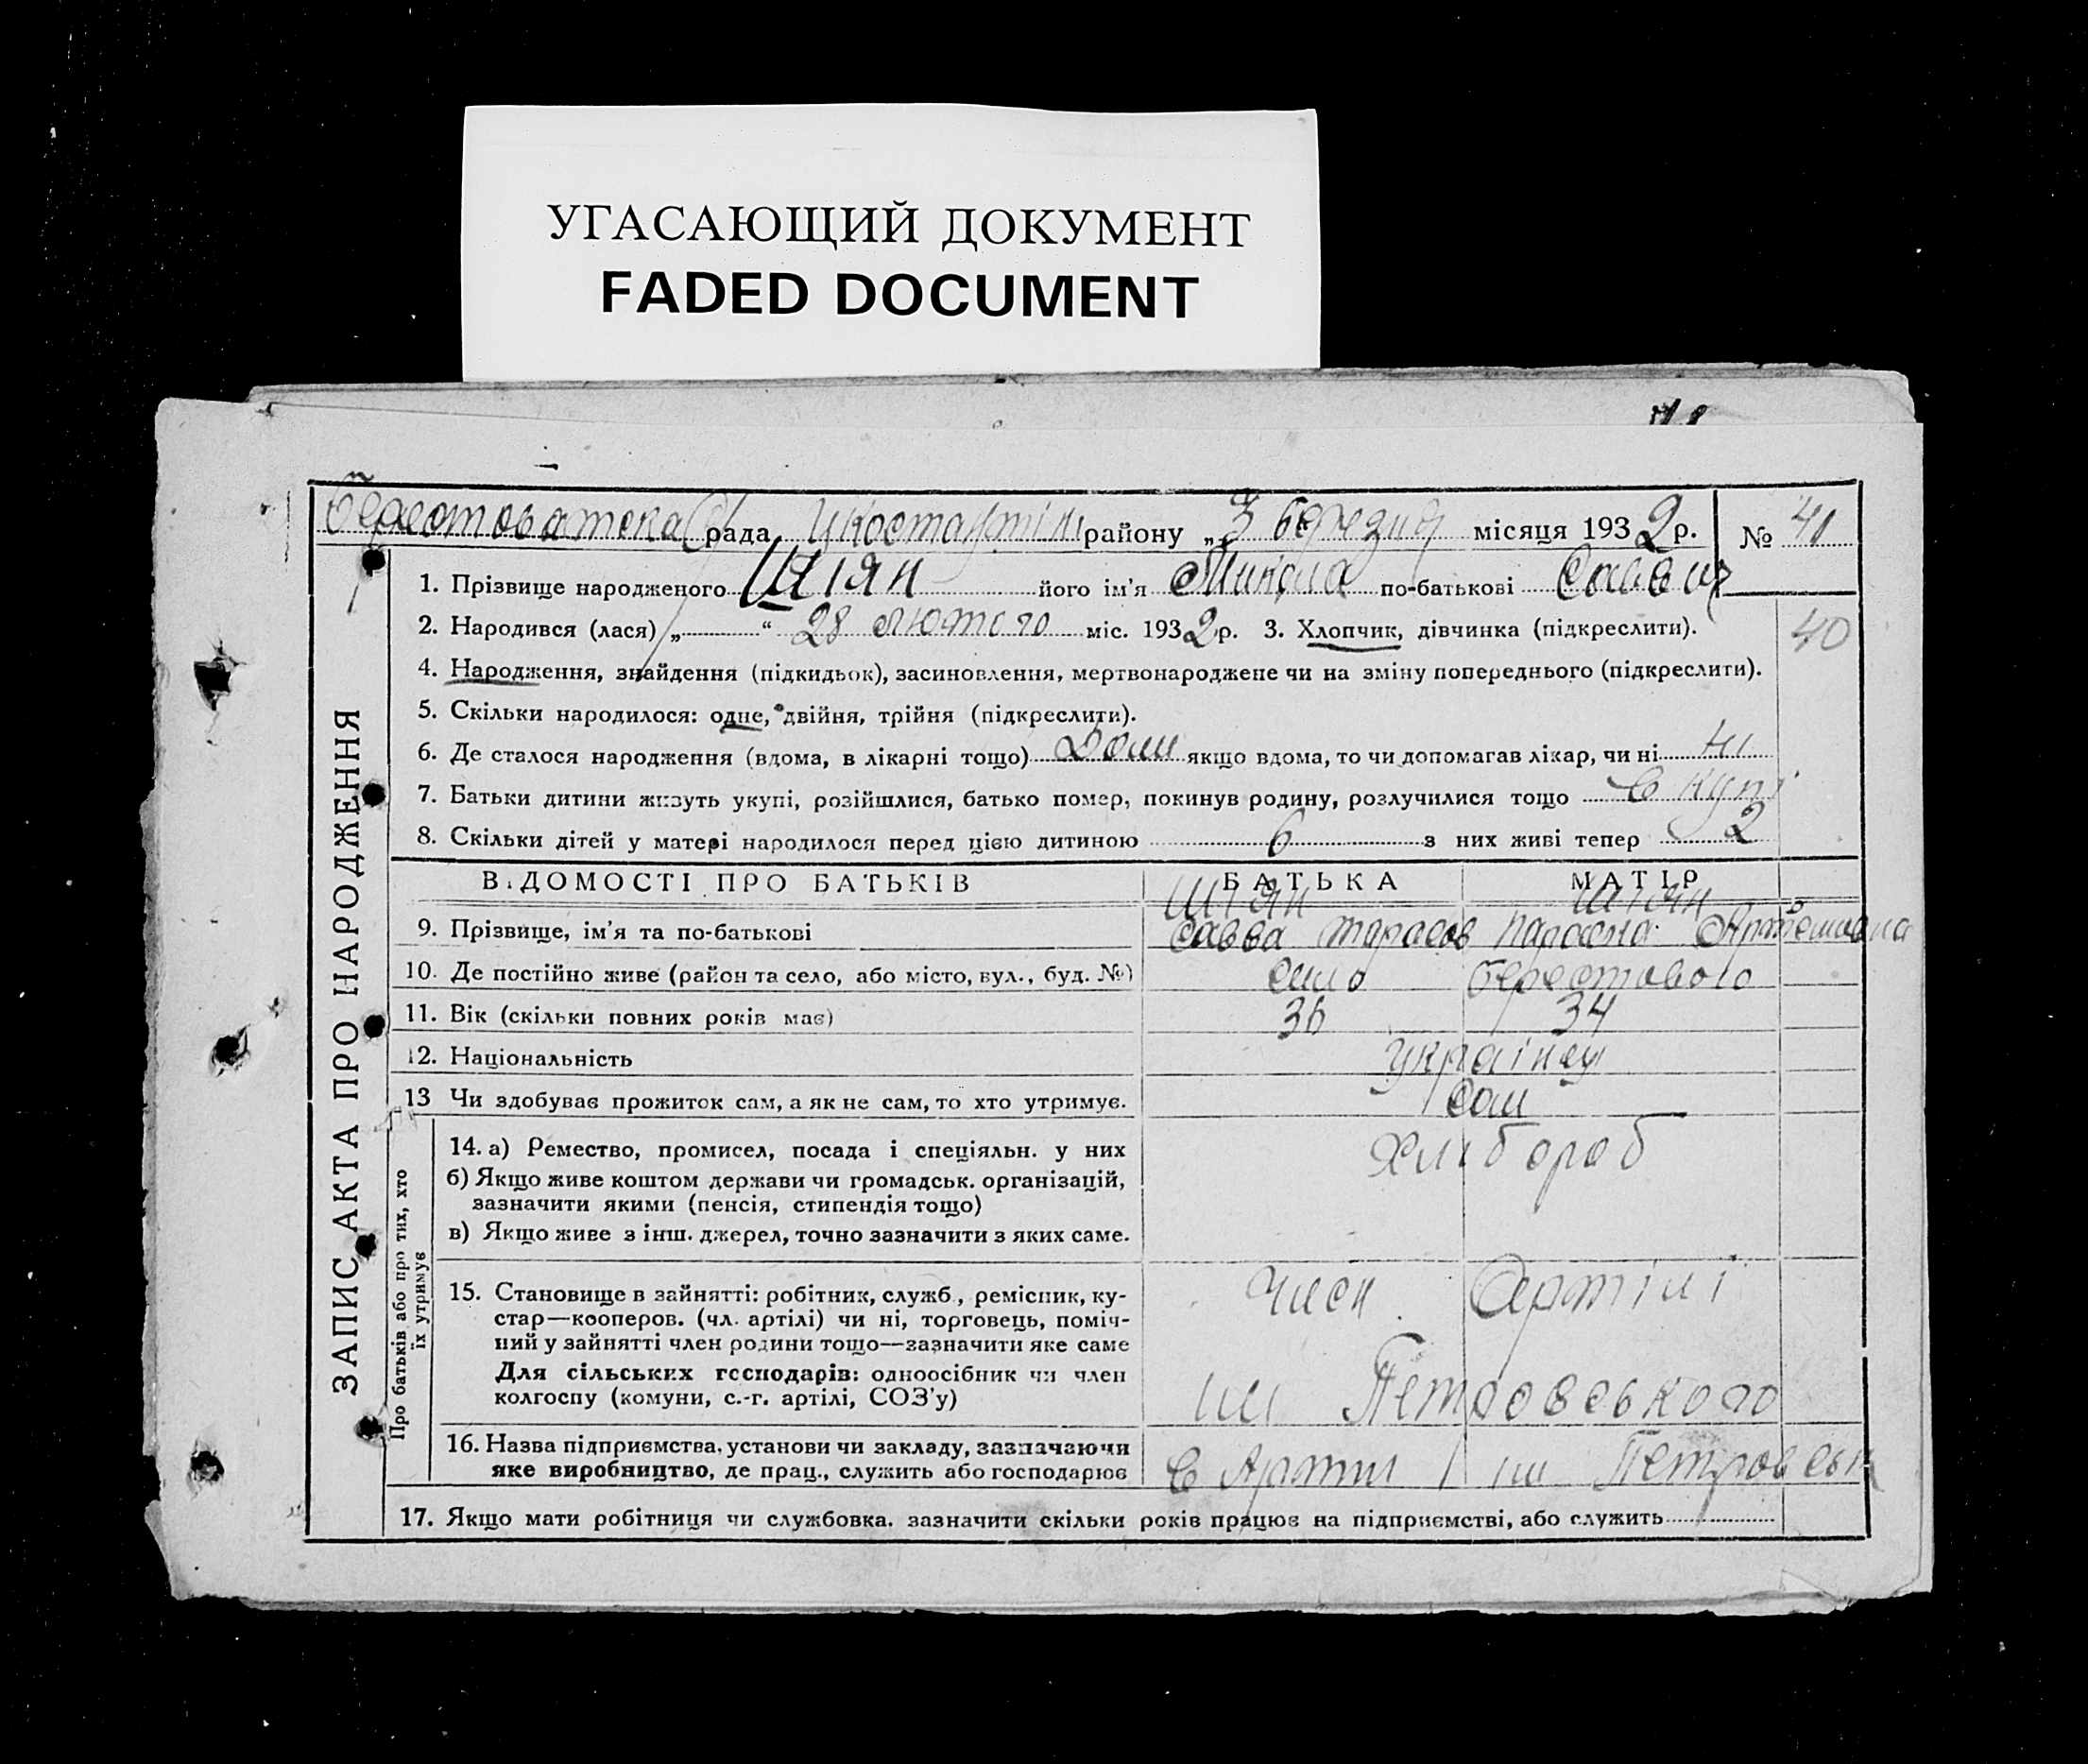 УГАСАЮЩИЙ ДОКУМЕНТ
FADED DOCUMENT
Берестоватська рада району „3 березня місяця 1932 р. №
1. Прізвище народженого Шіян його ім'я Микола по-батькові Савич
2. Народився (лася) „ “ 28 лютого міс. 1932 р. 3. Хлопчик, дівчинка (підкреслити).
40
4. Народження, знайдення (підкидьок), засиновлення, мертвонароджене чи на зміну попереднього (підкреслити).
5. Скільки народилося: одне, двійня, трійня (підкреслити).
6. Де сталося народження (вдома, в лікарні тощо) Доми якщо вдома, то чи допомагав лікар, чи ні ні
7. Батьки дитини живуть укупі, розійшлися, батько помер, покинув родину, розлучилися тощо в купі
8. Скільки дітей у матері народилося перед цією дитиною 6 з них живі тепер 2
ЗАПИС АКТА ПРО НАРОДЖЕННЯ
ВІДОМОСТІ ПРО БАТЬКІВ БАТЬКА МАТІР
Шіян Шіян
9. Прізвище, ім'я та по-батькові Савва Тарасов Параска Артемовна
10. Де постійно живе (район та село, або місто, вул., буд. №) село Берестового
11. Вік (скільки повних років має) 36 34
12. Національність українці
13 Чи здобуває прожиток сам, а як не сам, то хто утримує. сам
Про батьків або про тих, хто
їх утримує
14. а) Ремество, промисел, посада і спеціяльн. у них Хлібороб
б) Якщо живе коштом держави чи громадськ. організацій,
зазначити якими (пенсія, стипендія тощо)
в) Якщо живе з інш. джерел, точно зазначити з яких саме.
15. Становище в зайнятті: робітник, служб., ремісник, ку-
стар—кооперов. (чл. артілі) чи ні, торговець, поміч-
ний у зайнятті член родини тощо—зазначити яке саме
Для сільських господарів: одноосібник чи член
колгоспу (комуни, с.-г. артілі, СОЗ'у)
Член Артілі
ім Петровського
16. Назва підприємства, установи чи закладу, зазначаючи
яке виробництво, де прац., служить або господарює в Артілі ім Петровськ
17. Якщо мати робітниця чи службовка, зазначити скільки років працює на підприємстві, або служить